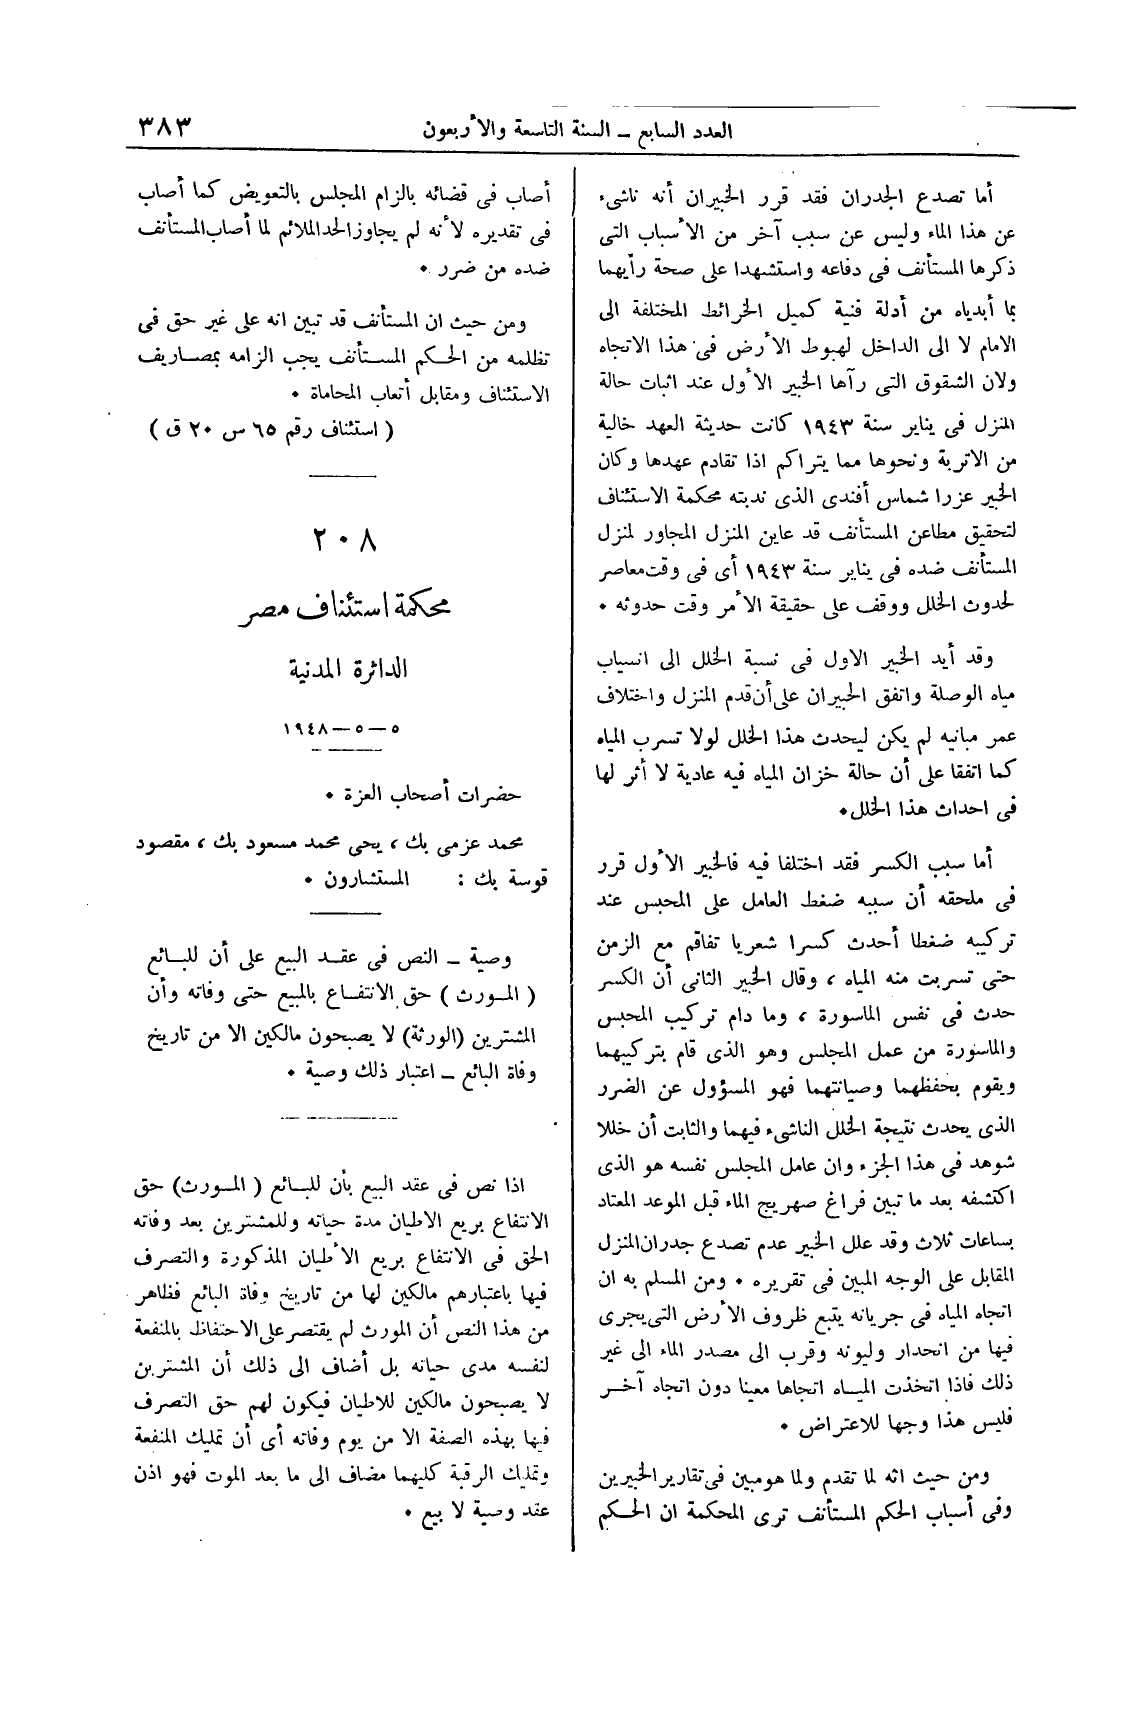 العدد السابع ــ السنة التاسعة والأربعون
٣٨٣
أما تصدع الجدران فقد قرر الخبيران أنه ناشىء
عن هذا الماء وليس عن سبب آخر من الأسباب التى
ذكرها المستأنف فى دفاعه واستشهدا على صحة رأيهما
بما أبدياه من أدلة فنية كميل الخرائط المختلفة الى
الامام لا الى الداخل لهبوط الأرض فى هذا الاتجاه
ولان الشقوق التى رآها الخبير الأول عند اثبات حالة
المنزل فى يناير سنة ١٩٤٣ كانت حديثة العهد خالية
من الاتربة ونحوها مما يتراكم اذا تقادم عهدها وكان
الخبير عزرا شماس أفندى الذى ندبته محكمة الاستئناف
لتحقيق مطاعن المستأنف قد عاين المنزل المجاور لمنزل
المستأنف ضده فى يناير سنة ١٩٤٣ أى فى وقت معاصر
لحدوث الخلل ووقف على حقيقة الأمر وقت حدوثه ٠
وقد أيد الخبير الاول فى نسبة الخلل الى انسياب
مياه الوصلة واتفق الخبيران على أن قدم المنزل واختلاف
عمر مبانيه لم يكن ليحدث هذا الخلل لولا تسرب المياه
كما اتفقا على أن حالة خزان المياه فيه عادية لا أثر لها
فى احداث هذا الخلل٠
أما سبب الكسر فقد اختلفا فيه فالخبير الأول قرر
فى ملحقه أن سببه ضغط العامل على المحبس عند
تركيبه ضغطا أحدث كسرا شعريا تفاقم مع الزمن
حتى تسربت منه المياه ، وقال الخبير الثانى أن الكسر
حدث فى نفس الماسورة ، وما دام تركيب المحبس
والماسورة من عمل المجلس وهو الذى قام بتركيبهما
ويقوم بحفظهما وصيانتهما فهو المسؤول عن الضرر
الذى يحدث نتيجة الخلل الناشىء فيهما والثابت أن خللا
شوهد فى هذا الجزء وان عامل المجلس نفسه هو الذى
اكتشفه بعد ما تبين فراغ صهريج الماء قبل الموعد المعتاد
بساعات ثلاث وقد علل الخبير عدم تصدع جدران المنزل
المقابل على الوجه المبين فى تقريره ٠ ومن المسلم به ان
اتجاه المياه فى جريانه يتبع ظروف الأرض التى يجرى
فيها من انحدار وليونه وقرب الى مصدر الماء الى غير
ذلك فاذا اتخذت الميـاه اتجاها معينا دون اتجاه آخـر
فليس هذا وجها للاعتراض ٠
ومن حيث انه لما تقدم ولما هو مبين فى تقارير الخبيرين
وفى أسباب الحكم المستأنف ترى المحكمة ان الحـكم
أصاب فى قضائه بالزام المجلس بالتعويض كما أصاب
فى تقديره لأنه لم يجاوز الحد الملائم لما أصاب المستأنف
ضده من ضرر ٠
ومن حيث ان المستأنف قد تبين انه على غير حق فى
تظلمه من الحـكم المسـتأنف يجب الزامه بمصـاريف
الاستئناف ومقابل أتعاب المحاماة ٠
( استئناف رقم ٦٥ س ٢٠ ق )
٢٠٨
محكمة استئناف مصر
الدائرة المدنية
٥ــ٥ــ١٩٤٨
حضرات أصحاب العزة ٠
محمد عزمى بك ، يحى محمد مسعود بك ، مقصود
قوسة بك : المستشارون ٠
وصية ــ النص فى عقـد البيع على أن للبـائع
( المـورث ) حق الانتفـاع بالمبيع حتى وفاته وأن
المشترين (الورثة) لا يصبحون مالكين الا من تاريخ
وفاة البائع ــ اعتبار ذلك وصية ٠
اذا نص فى عقد البيع بأن للبـائع ( المـورث) حق
الانتفاع بريع الاطيان مدة حياته وللمشترين بعد وفاته
الحق فى الانتفاع بريع الأطيان المذكورة والتصرف
فيها باعتبارهم مالكين لها من تاريخ وفاة البائع فظاهر
من هذا النص أن المورث لم يقتصر على الاحتفاظ بالمنفعة
لنفسه مدى حياته بل أضاف الى ذلك أن المشترين
لا يصبحون مالكين للاطيان فيكون لهم حق التصرف
فيها بهذه الصفة الا من يوم وفاته أى أن تمليك المنفعة
وتمليك الرقبة كليهما مضاف الى ما بعد الموت فهو اذن
عقد وصية لا بيع ٠